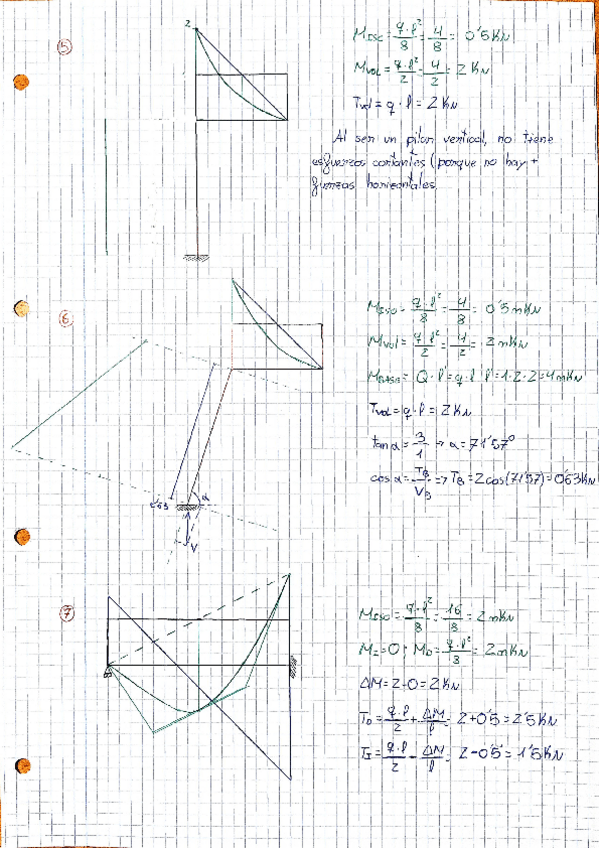 5
2
Miso = q·l²/8 = 4/8 = 0'5 KN
Mvol = q·l²/2 = 4/2 = 2 KN
Tvol = q·l = 2 KN
Al ser un pilar vertical, no tiene
esfuerzos cortantes (porque no hay
fuerzas horizontales
6
Miso = q·l²/8 = 4/8 = 0'5 mKN
Mvol = q·l²/2 = 4/2 = 2 mKN
Mbase = Q·l' = q·l·l' = 1·2·2 = 4 mKN
Tvol = q·l = 2 KN
tan α = 3/1 → α = 71'57°
cos α = TB/VB => TB = 2 cos(71'57) = 0'63 KN
α
0'63
V
7
Miso = q·l²/8 = 16/8 = 2 mKN
MI = 0; MD = q·l²/8 = 2 mKN
ΔM = 2-0 = 2 KN
TD = q·l/2 + ΔM/l = 2+0'5 = 2'5 KN
TI = q·l/2 - ΔM/l = 2-0'5 = 1'5 KN